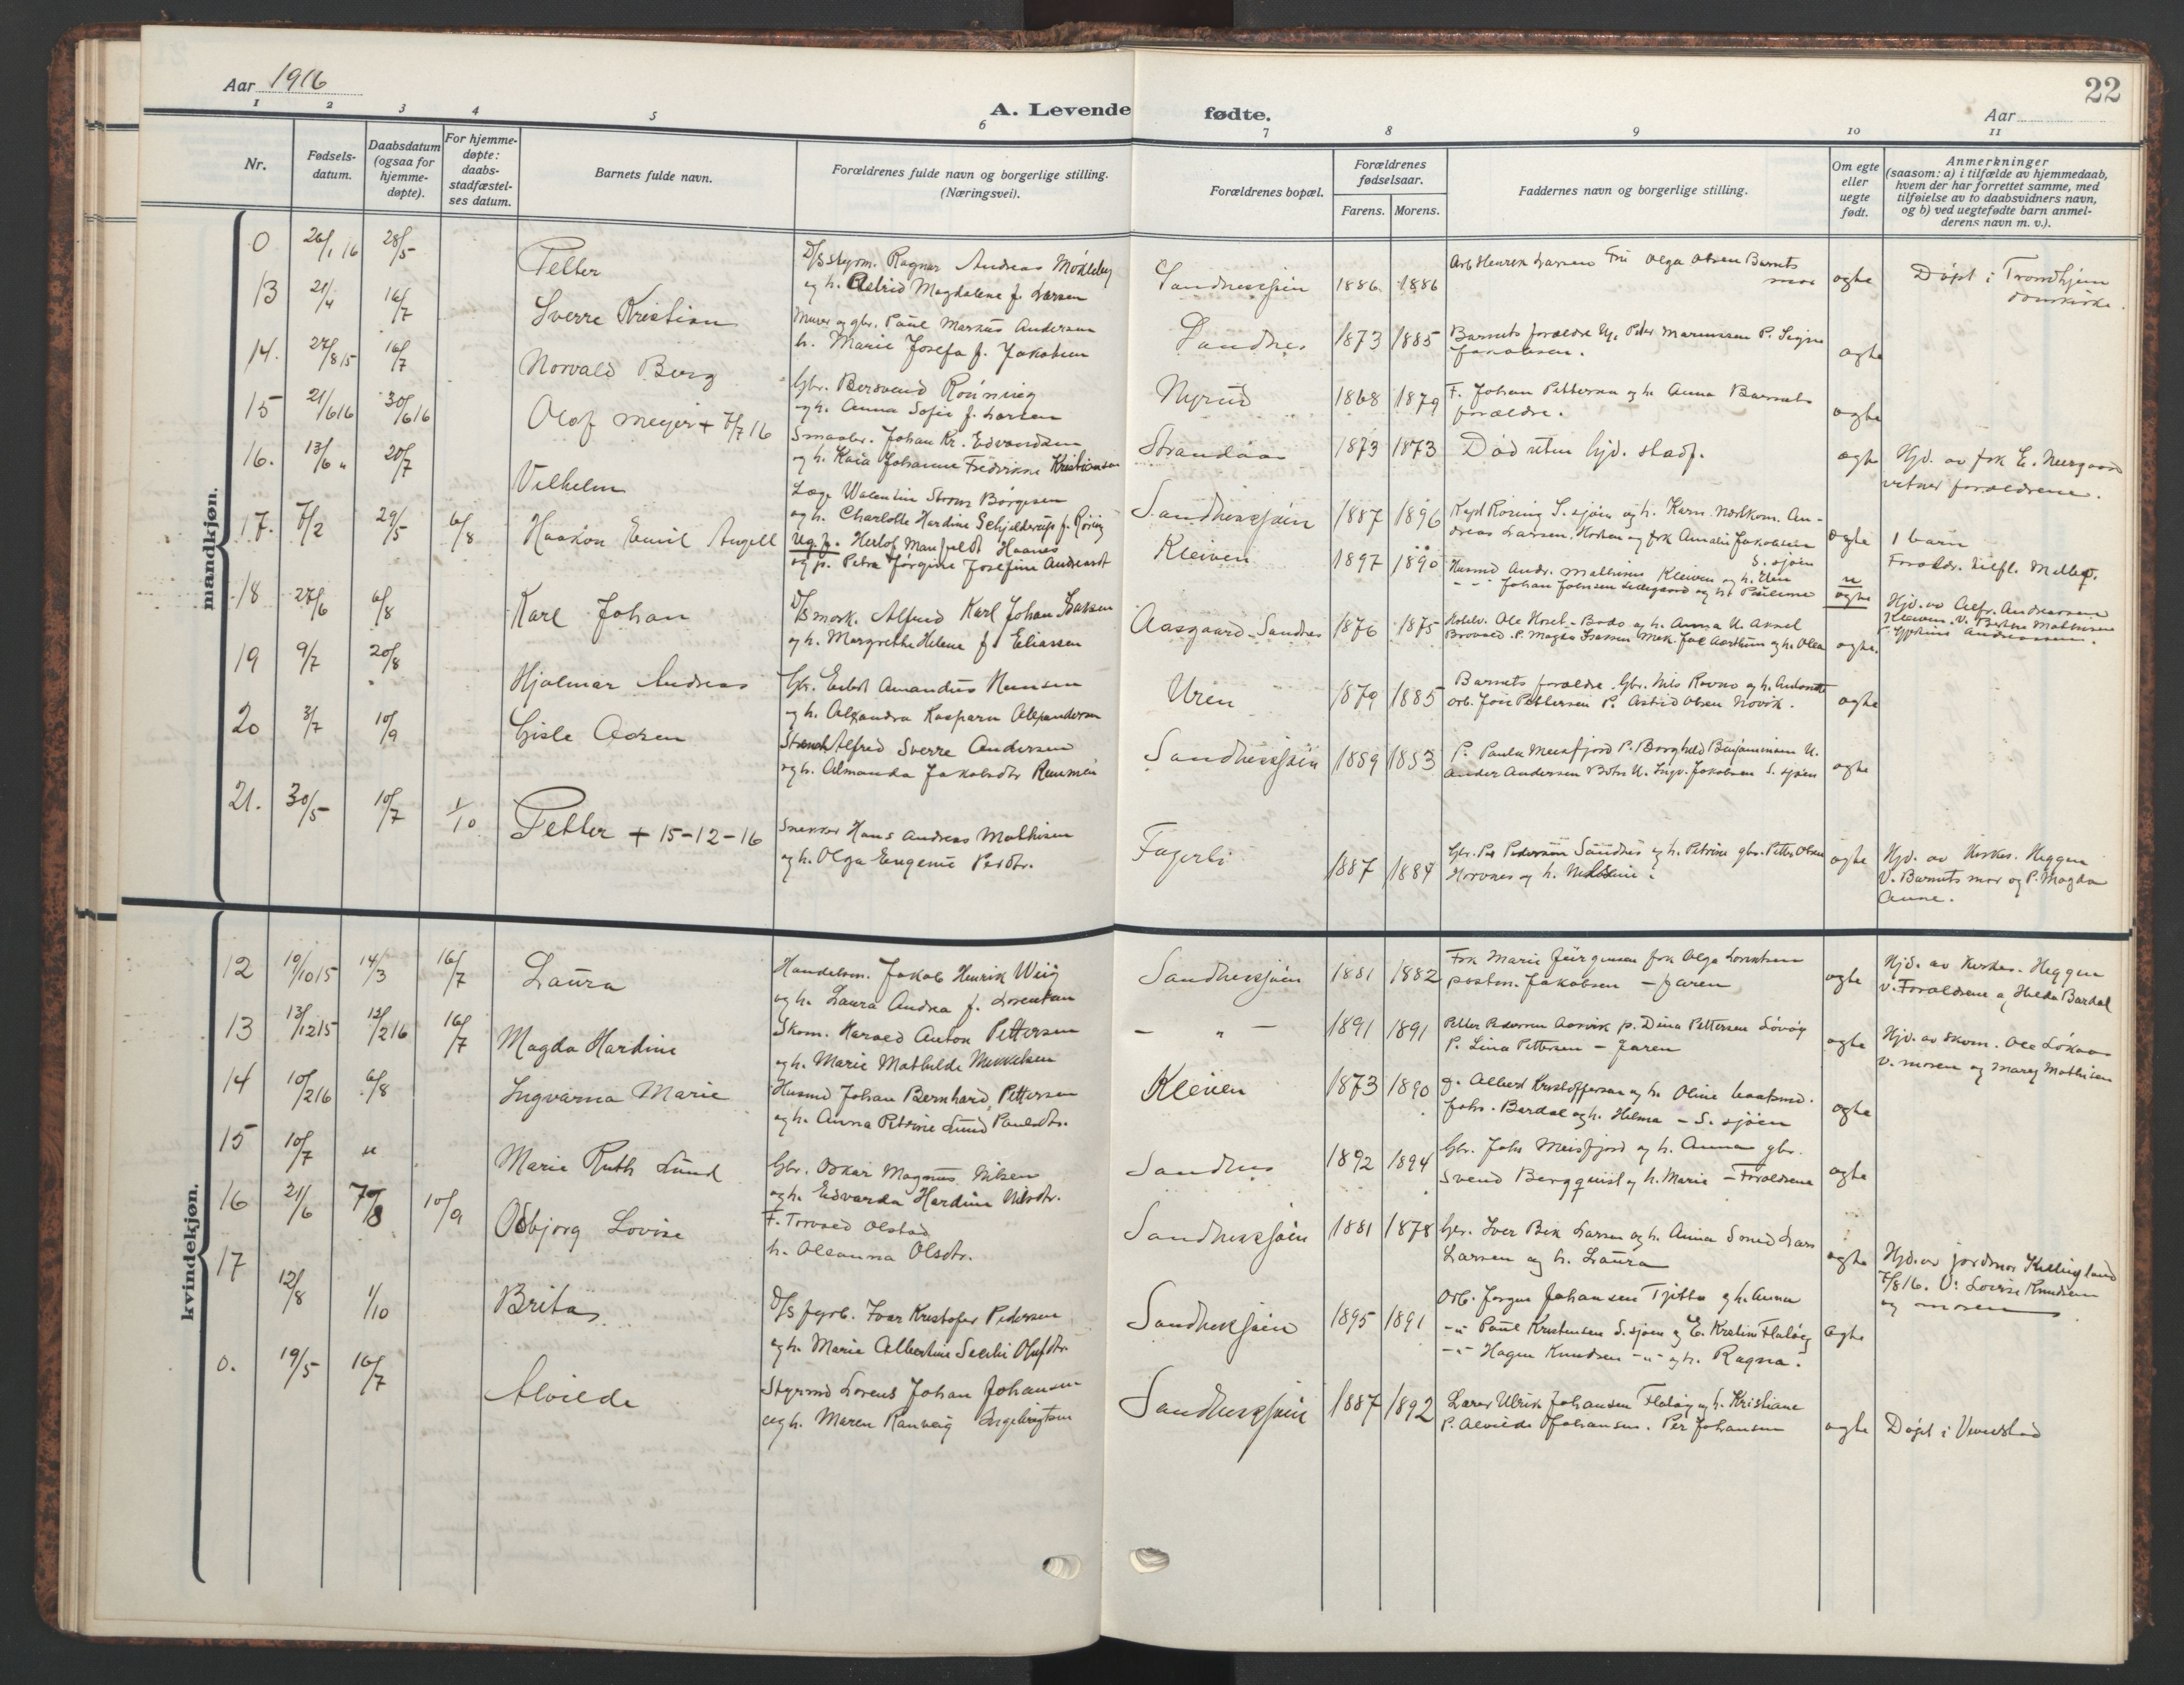 22
Aar 1916
A. Levende fødte.
Aar
1 2 3 4 5 6 7 8 9 10 11
Nr.
Fødsels-
datum.
Daabsdatum
(ogsaa for
hjemme-
døpte).
For hjemme-
døpte:
daabs-
stadfæstel-
ses datum.
Barnets fulde navn.
Forældrenes fulde navn og borgerlige stilling.
(Næringsvei).
Forældrenes bopæl.
Forældrenes
fødselsaar.
Farens. Morens.
Faddernes navn og borgerlige stilling.
Om egte
eller
uegte
født.
Anmerkninger
(saasom: a) i tilfælde av hjemmedaab,
hvem der har forrettet samme, med
tilføielse av to daabsvidners navn,
og b) ved uegtefødte barn anmel-
derens navn m. v.).
mandkjøn.
0 26/1 16 28/5 Petter
D/S styrm. Ragnar Andreas Mökleby
og h. Astrid Magdalene f. Larsen
Sandnessjöen 1886 1886
Arb Henrik Larsen Fru Olga Olsen Barnets
mor
egte
Döpt i Trondhjem
domkirke.
13 21/4 16/7 Sverre Kristian
Murer og gbr. Paul Markus Andersen
h. Marie Josefa f. Jakobsen
Sandnes 1873 1885
Barnets forældre Peter Marensen P. Signe
Jakobsen.
egte
14. 27/8 15 16/7 Norvald Berg
Gbr. Bersvend Rönning
og h. Anna Sofie f. Larsen
Nyrud 1868 1879
F. Johan Pettersen og h. Anna Barnets
forældre.
egte
15 21/6 16 30/6 16 Olof Meyer + 7/7 16
Smaabr. Johan Kr. Edvardsen
og h. Kaia Johanne Fredrikke Kristiansen
Strandaa 1873 1873
Död uten hjd. stadf.
egte
Hjd. av frk E. Neergaard
vitner forældrene.
16. 13/6 " 20/7 Vilhelm
Læge Valentin Ström Börgesen
og h. Charlotte Hardine Schjelderup f. Röring
Sandnessjöen 1887 1896
Kapt Röring S.sjöen og h. Karn. Nordkom. An-
dreas Larsen, Horten og frk Amalie Jakobsen
S. sjöen
egte
1 barn
17. 7/2 29/5 6/8 Haakon Emil Angell
Ug. f. Herlof Manfeldt Haanes
og p. Petra Jörgine Josefine Andreasdt
Kleiven 1897 1890
Husmd Andr. Mathisen Kleiven og h. Elen
- " - Johan Johnsen og h. Pauline
u
egte
Forældr. tilfl. Melbo.
Hjd. av Alfr. Andreassen
Kleiven. V. Berthe Mathisen
18 27/6 6/8 Karl Johan
D/S mask. Alfred Karl Johan Isaksen
og h. Margrethe Helene f. Eliassen
Aasgaard - Sandnes 1876 1875
egte.
19 9/7 20/8 Hjalmar Andreas
Gbr. Amandus Hansen
og h. Alexandra Kaspara Alexandersen
Uren 1879 1885
Barnets forældre. Gbr. Nils Ravno og h. Antonette
arb. Jon Pettersen P. Astrid Olsen Novik.
egte
20 3/7 10/9 Gisle Aasen
Alfred Sverre Andersen
og h. Almanda Jakobsdtr Remmen
Sandnessjöen 1889 1883
P. Paula Meisfjord P. Borghild Benjaminsen U.
Ander Andersen Botn U. Ingv. Jakobsen S. sjöen
egte
21. 30/5 10/7 1/10 Petter + 15-12-16
Snekker Hans Andreas Mathisen
og h. Olga Eugenie Persdtr.
Fagerli 1887 1884
Gbr. Per Pedersen Sandnes og h. Petrine gbr. Petter Olsen
Horvnes og h.
egte
Hjd. av Kirkes. Heggen
V. Barnets mor og P. Magda
Aune.
kvindekjøn.
12 19/10 15 14/3 16/7 Laura
Handelsm. Jakob Henrik Weig
og h. Laura Andrea f. Lorentsen
Sandnessjöen 1881 1882
Frk Marie Jürgensen frk Olga Lorentsen
postm. Jakobsen - faren
egte
Hjd. av Kirkes. Heggen
v. Forældrene og Hilda Bardal
13 13/12 15 12/2 16 16/7 Magda Hardine
Skom. Harald Anton Pettersen
og h. Marie Mathilde Mikkelsen
- " - 1891 1891
Petter Pedersen Aasvik p. Dina Pettersen Lövöy
P. Lina Pettersen - faren
egte
Hjd. av skom. Ole Lökaas
v. moren og Mary Mathisen
14 10/2 16 6/8 Ingvarna Marie
Husmd Johan Bernhard Pettersen
og h. Anna Petrine Lund Paulsdtr.
Kleiven 1873 1890
g. Albert Kristoffersen og h. Oline baatsmd.
Johs. Bardal og h. Helma - S. sjöen
egte
15 10/7 " Marie Ruth Lund
Gbr. Oskar Magnus Nilsen
og h. Edvarda Hardine Nilsdtr.
Sandnes 1892 1894
Gbr. Johs Meisfjord og h. Anna gbr.
Svend Bergquist og h. Marie - Forældrene
egte
16 21/6 7/8 10/9 Osbjorg Lovise
F. Torvald Olstad
h. Oleanna Olsdtr.
Sandnessjöen 1881 1878
Gbr. Iver Bek Larsen og h. Anna Smed Lars
Larsen og h. Laura
egte
Hjd. av jordmor Kellingland
7/8 16. V: Lovise Knudsen
og moren
17 12/8 1/10 Brita
D/S fyrb. Ivar Kristofer Pedersen
og h. Marie Albertine Secilie Olufsdtr
Sandnessjöen 1895 1891
Arb. Jörgen Johansen Tjötta og h. Anna
- " - Paul Kristensen S. sjöen og E. Kristine Flatöy
- " - Hagen Knudsen - " - og h. Ragna.
egte
0. 19/5 16/7 Alvilde
Styrmd Lorens Johan Johansen
og h. Maren Ranveig Ingebrigtsen
Sandnessjöen 1887 1892
Lærer Ulrik Johansen Flatöy og h. Kristiane
P. Alvilde Johansen. Per Johansen
egte
Döpt i Vevelstad